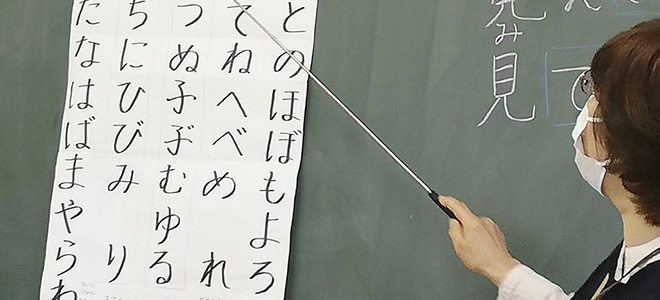 たちつてと
なにぬねの
はひふへほ
ばびぶべぼ
まみむめも
やゆよ
らりるれろ
わ
見み見